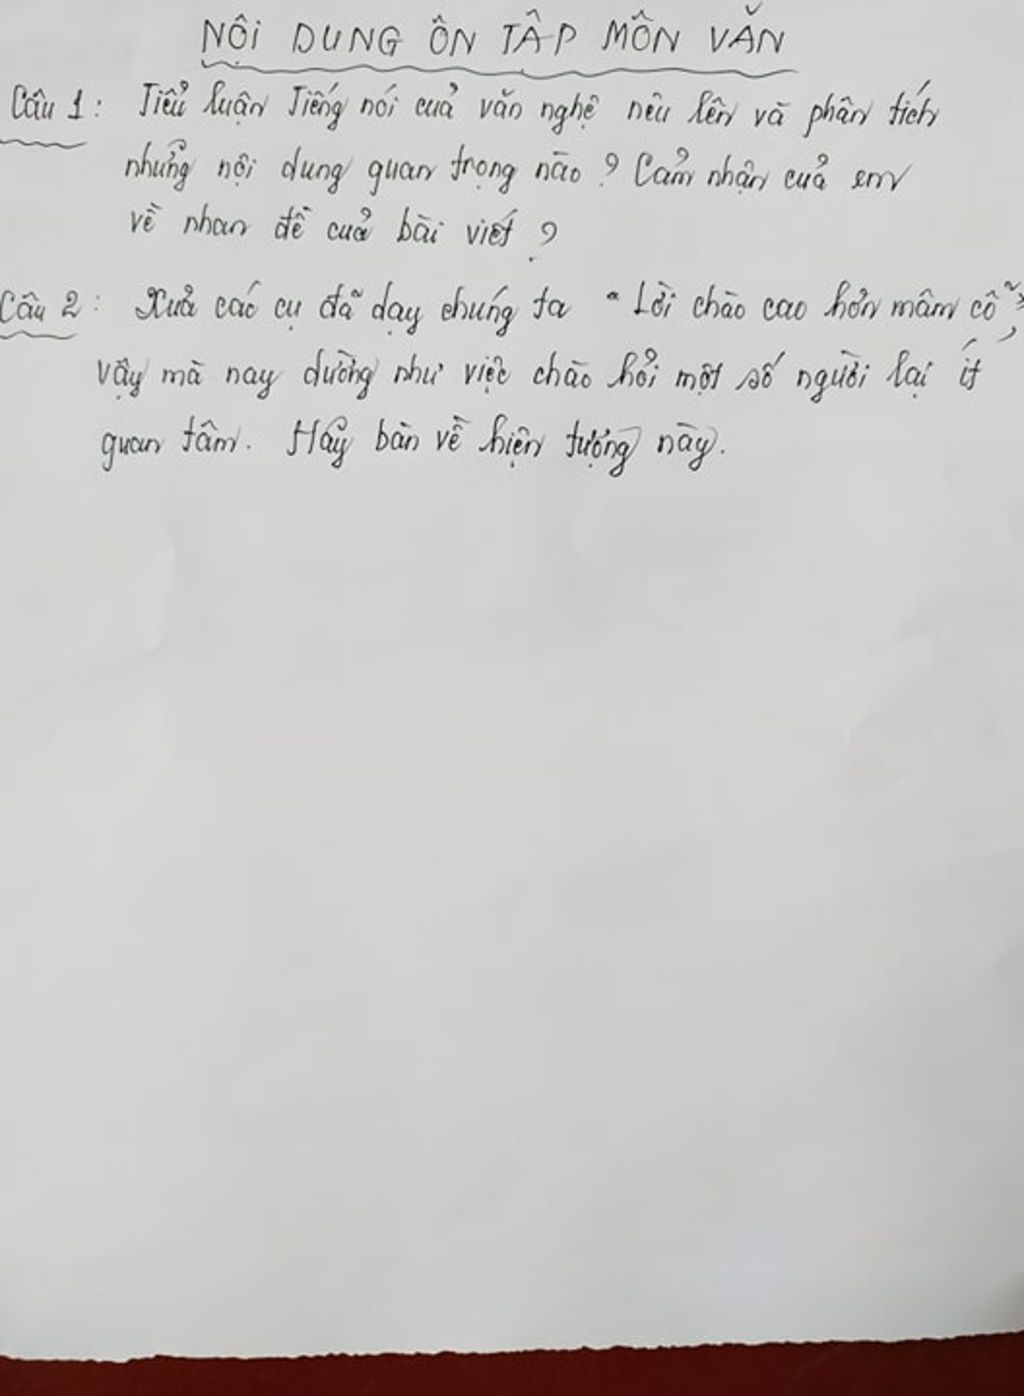 NỘI DUNG ÔN TẬP MÔN VĂN
Câu 1: Tiểu luận Tiếng nói của văn nghệ nêu lên và phân tích
những nội dung quan trọng nào? Cảm nhận của em
về nhan đề của bài viết?
Câu 2: Xưa các cụ đã dạy chúng ta "Lời chào cao hơn mâm cỗ",
vậy mà nay dường như việc chào hỏi một số người lại ít
quan tâm. Hãy bàn về hiện tượng này.